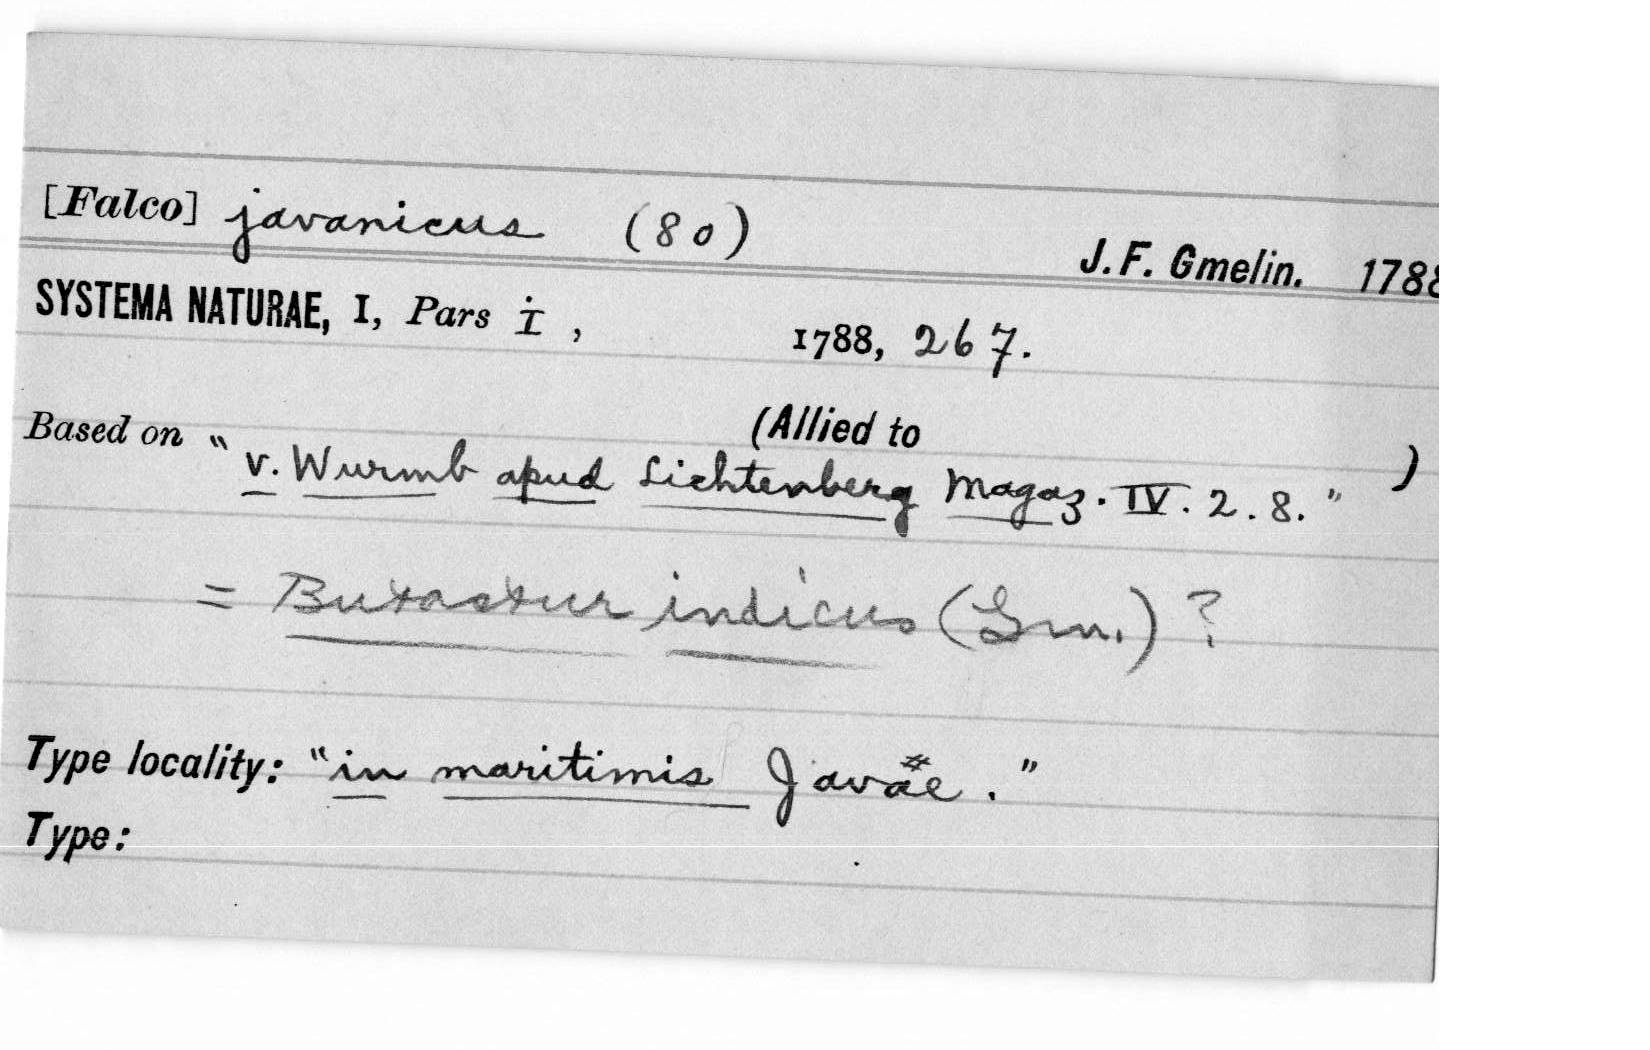 [Falco] javanicus (80)
J. F. Gmelin. 1788
SYSTEMA NATURAE, I, Pars i, 1788, 267.
(Allied to )
Based on "v. Wurmb apud Lichtenberg Magaz. IV. 2. 8."
= Butastur indicus (Gm.) ?
Type locality: "in maritimis Javae."
Type: